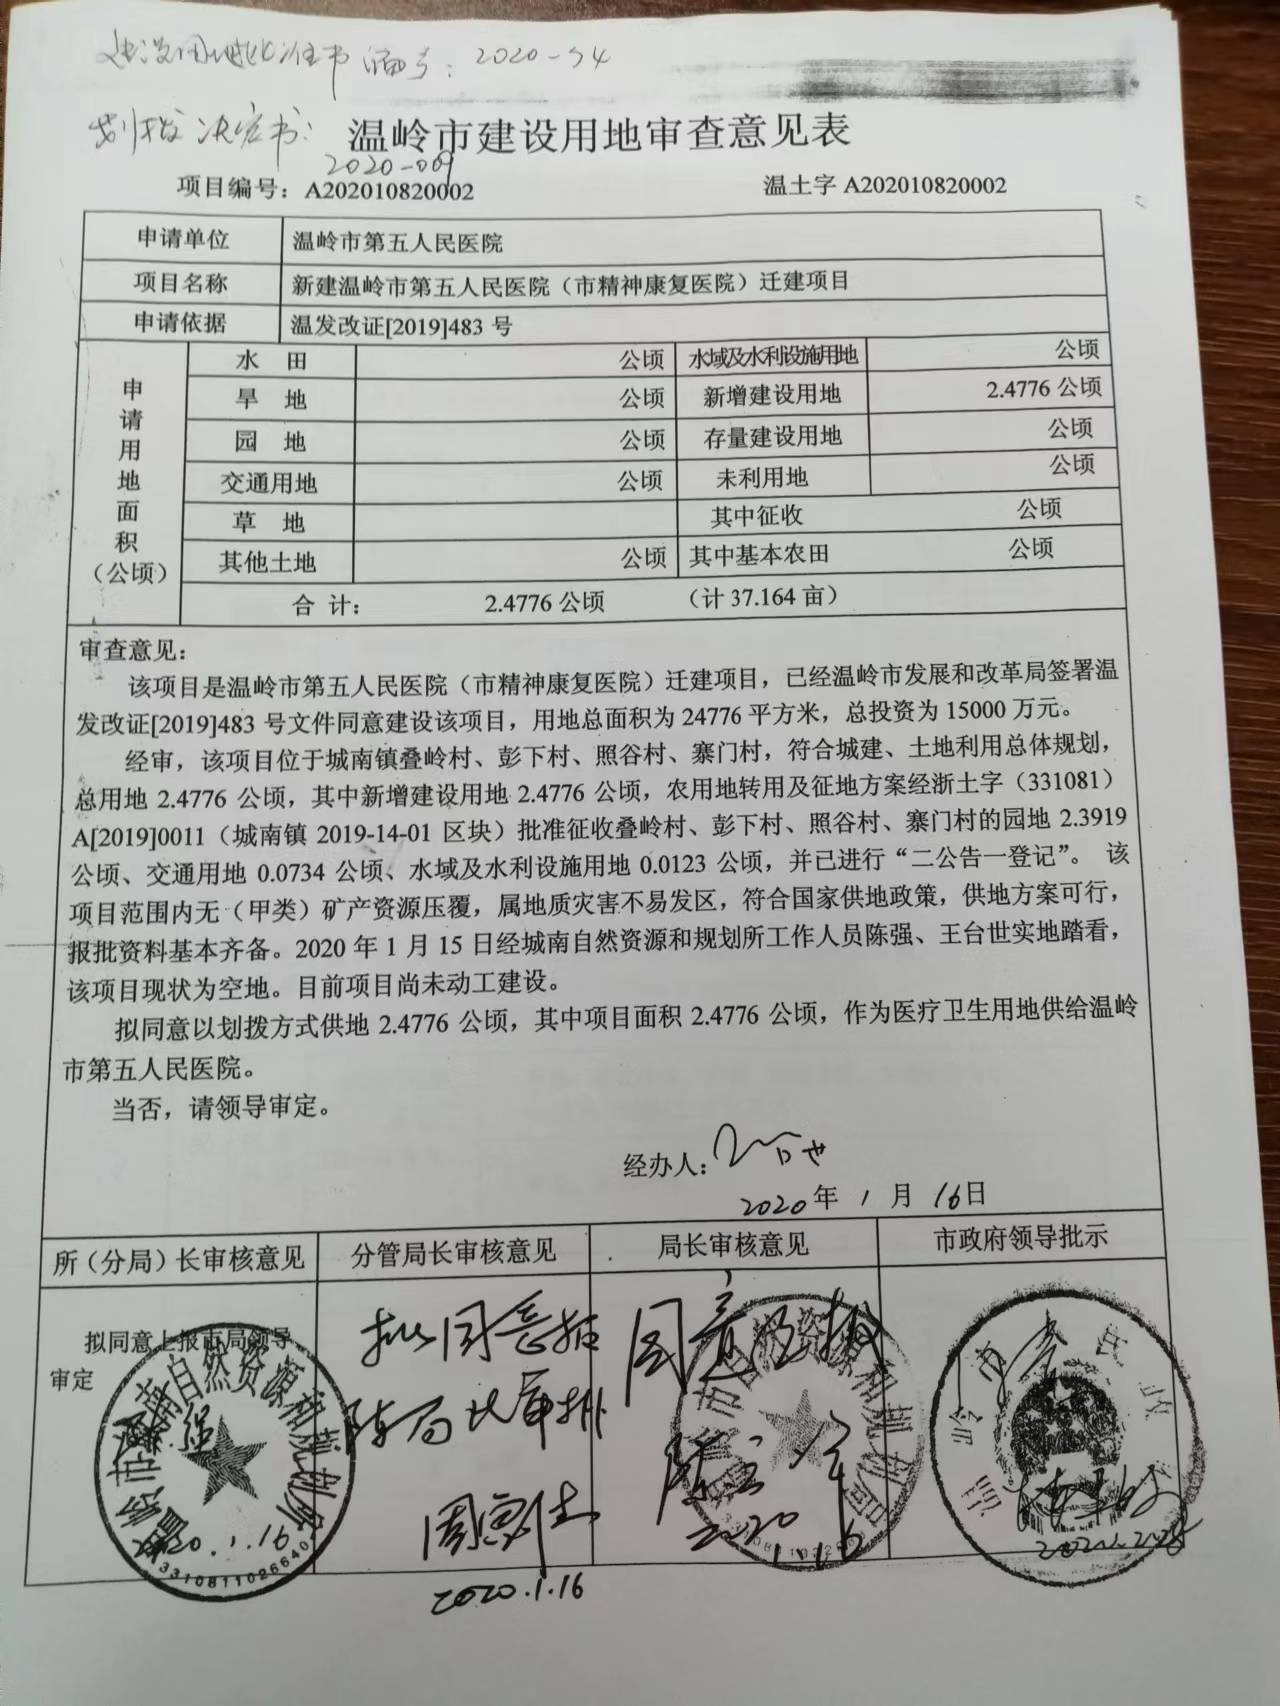 建设用地批准书 编号：2020-34
划拨决定书：
2020-009
温岭市建设用地审查意见表
项目编号：A202010820002 温土字 A202010820002
申请单位 温岭市第五人民医院
项目名称 新建温岭市第五人民医院（市精神康复医院）迁建项目
申请依据 温发改证[2019]483 号
申请用地面积（公顷）
水 田 公顷 水域及水利设施用地 公顷
旱 地 公顷 新增建设用地 2.4776 公顷
园 地 公顷 存量建设用地 公顷
交通用地 公顷 未利用地 公顷
草 地 其中征收 公顷
其他土地 公顷 其中基本农田 公顷
合 计： 2.4776 公顷 （计 37.164 亩）
审查意见：
该项目是温岭市第五人民医院（市精神康复医院）迁建项目，已经温岭市发展和改革局签署温
发改证[2019]483 号文件同意建设该项目，用地总面积为 24776 平方米，总投资为 15000 万元。
经审，该项目位于城南镇叠岭村、彭下村、照谷村、寨门村，符合城建、土地利用总体规划，
总用地 2.4776 公顷，其中新增建设用地 2.4776 公顷，农用地转用及征地方案经浙土字（331081）
A[2019]0011（城南镇 2019-14-01 区块）批准征收叠岭村、彭下村、照谷村、寨门村的园地 2.3919
公顷、交通用地 0.0734 公顷、水域及水利设施用地 0.0123 公顷，并已进行“二公告一登记”。 该
项目范围内无（甲类）矿产资源压覆，属地质灾害不易发区，符合国家供地政策，供地方案可行，
报批资料基本齐备。2020 年 1 月 15 日经城南自然资源和规划所工作人员陈强、王台世实地踏看，
该项目现状为空地。目前项目尚未动工建设。
拟同意以划拨方式供地 2.4776 公顷，其中项目面积 2.4776 公顷，作为医疗卫生用地供给温岭
市第五人民医院。
当否，请领导审定。
经办人：
2020 年 1 月 16 日
所（分局）长审核意见 分管局长审核意见 局长审核意见 市政府领导批示
拟同意上报市局领导
审定
2020.1.16
3310811026640
拟同意
陈局长审批
2020.1.16
同意
2020.1.16